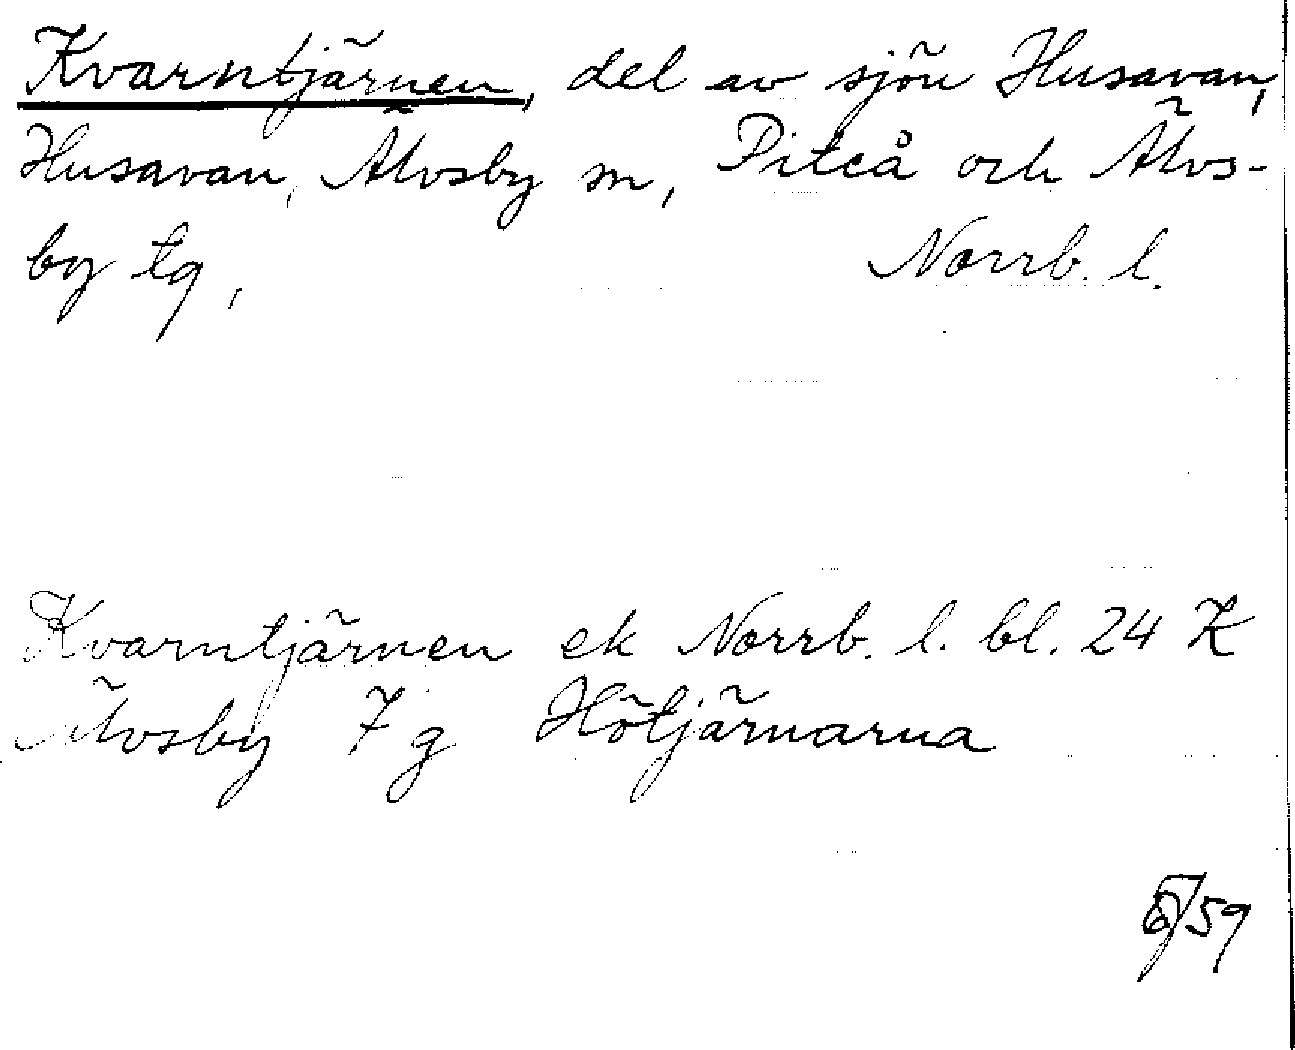 Kvarntjärnen, del av sjön Husavan,
Husavan, Älvsby sn, Piteå och Älvs-
by tg, Norrb. l.
Kvarntjärnen ek Norrb. l. bl. 24 K
Älvsby 7 g Hötjärnarna
/59